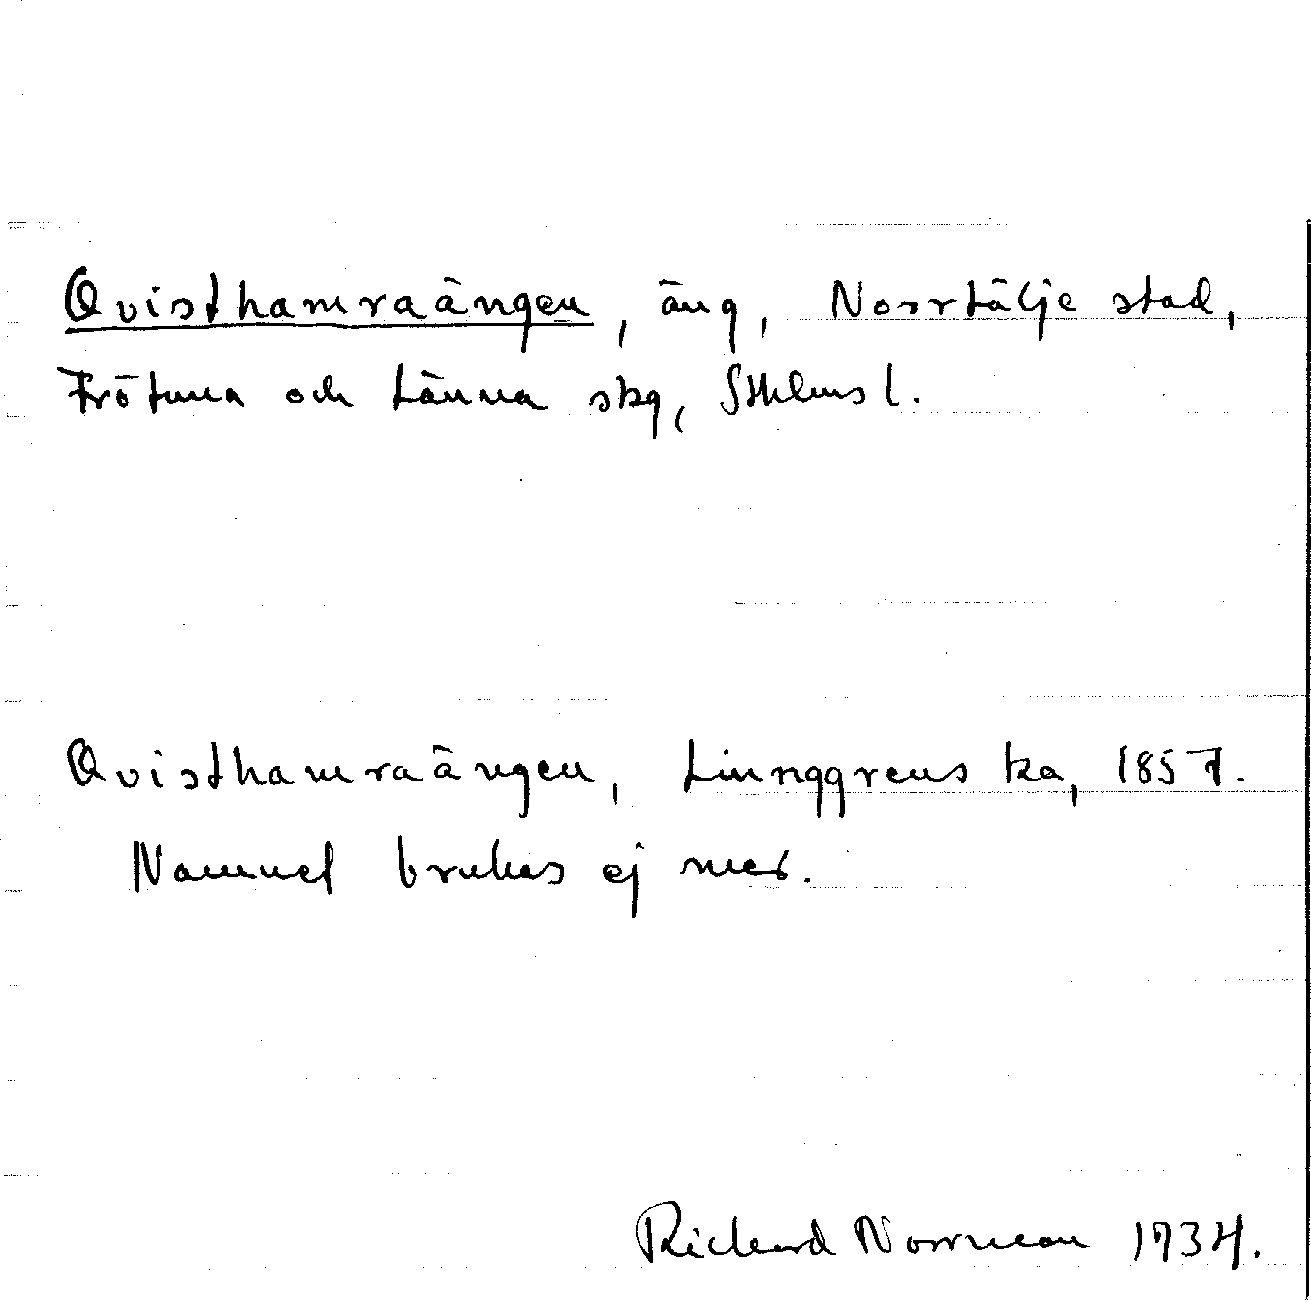 Qvisthamraängen, äng, Norrtälje stad,
Frötuna och Länna skg, Sthlms l.
Qvisthamraängen, Linnggrens ka, 1857.
Namnet brukas ej mer.
Richard Norrman 1934.